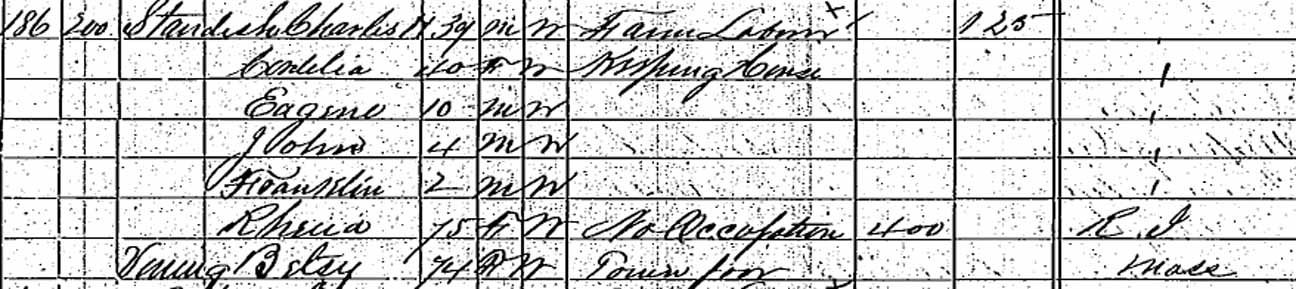 186 200 Standish Charles H 39 M W Farm Labour 125
Cordelia 40 F W Keeping House
Eugene 10 M W
John 4 M W
Franklin 2 M W
75 F W No Occupation 400 R. I
Betsy 74 F W Town poor Mass